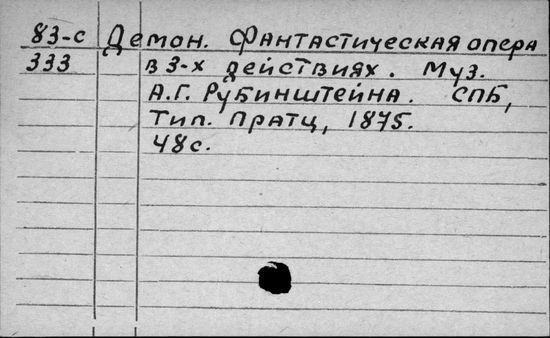 83-с Демон. Фантастическая опера
333 в 3-х действиях. Муз.
А.Г. Рубинштейна. СПБ,
Тип. Пратц, 1875.
48с.